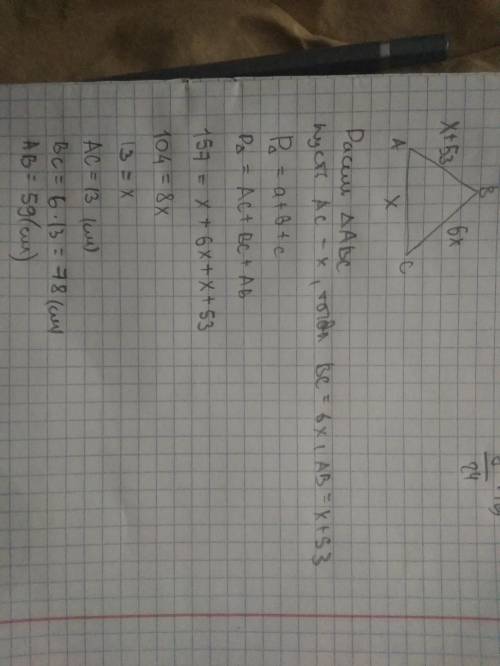 B
x+53
6x
A
x
C
Рассм △ABC
пусть AC = x, тогда BC = 6x, AB = x+53
P△ = a+b+c
P△ = AC+BC+AB
157 = x+6x+x+53
104 = 8x
13 = x
AC = 13 (см)
BC = 6·13 = 78 (см)
AB = 59 (см)
24